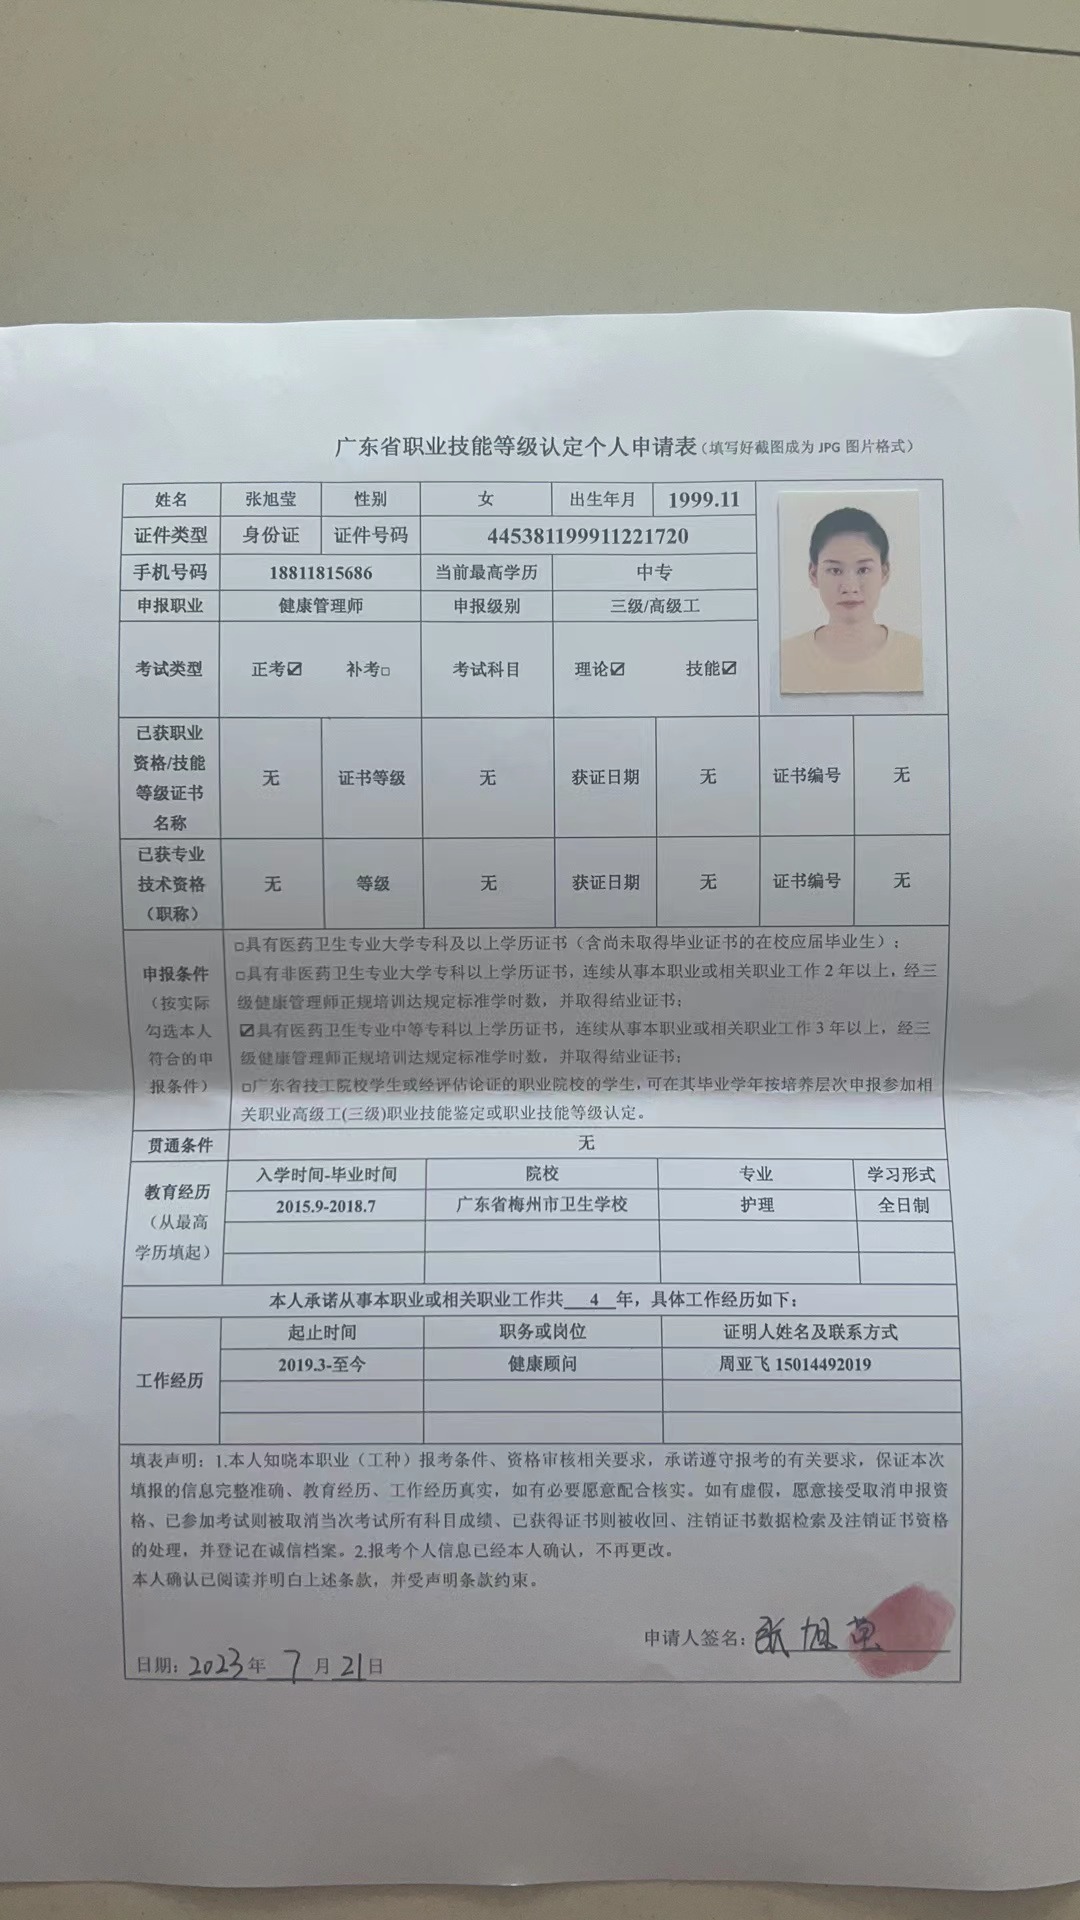 广东省职业技能等级认定个人申请表（填写好截图成为 JPG 图片格式）
姓名 张旭莹 性别 女 出生年月 1999.11
证件类型 身份证 证件号码 445381199911221720
手机号码 18811815686 当前最高学历 中专
申报职业 健康管理师 申报级别 三级/高级工
考试类型 正考☑ 补考□ 考试科目 理论☑ 技能☑
已获职业
资格/技能
等级证书
名称
无 证书等级 无 获证日期 无 证书编号 无
已获专业
技术资格
（职称）
无 等级 无 获证日期 无 证书编号 无
申报条件
（按实际
勾选本人
符合的申
报条件）
□具有医药卫生专业大学专科及以上学历证书（含尚未取得毕业证书的在校应届毕业生）；
□具有非医药卫生专业大学专科以上学历证书，连续从事本职业或相关职业工作 2 年以上，经三
级健康管理师正规培训达规定标准学时数，并取得结业证书；
☑具有医药卫生专业中等专科以上学历证书，连续从事本职业或相关职业工作 3 年以上，经三
级健康管理师正规培训达规定标准学时数，并取得结业证书；
□广东省技工院校学生或经评估论证的职业院校的学生，可在其毕业学年按培养层次申报参加相
关职业高级工(三级)职业技能鉴定或职业技能等级认定。
贯通条件 无
教育经历
（从最高
学历填起）
入学时间-毕业时间 院校 专业 学习形式
2015.9-2018.7 广东省梅州市卫生学校 护理 全日制
本人承诺从事本职业或相关职业工作共 4 年，具体工作经历如下：
工作经历
起止时间 职务或岗位 证明人姓名及联系方式
2019.3-至今 健康顾问 周亚飞 15014492019
填表声明：1.本人知晓本职业（工种）报考条件、资格审核相关要求，承诺遵守报考的有关要求，保证本次
填报的信息完整准确、教育经历、工作经历真实，如有必要愿意配合核实。如有虚假，愿意接受取消申报资
格、已参加考试则被取消当次考试所有科目成绩、已获得证书则被收回、注销证书数据检索及注销证书资格
的处理，并登记在诚信档案。2.报考个人信息已经本人确认，不再更改。
本人确认已阅读并明白上述条款，并受声明条款约束。
申请人签名：张旭莹
日期：2023年 7 月 21 日